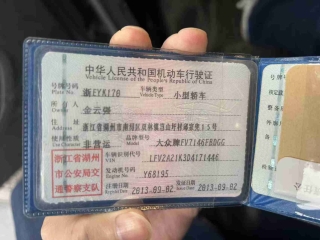 中华人民共和国机动车行驶证
Vehicle License of the People's Republic of China
号牌号码
Plate No.
浙EYK176
车辆类型
Vehicle Type
小型轿车
所有人
Owner
金云强
住址
Address
浙江省湖州市
使用性质
Use Character
非营运
品牌型号
Model
大众牌FV7146FBDGG
浙江省湖州
市公安局交
通警察支队
车辆识别代号
VIN
LFV2A21K3D4171446
发动机号码
Engine No.
Y68195
注册日期
Register Date
2013-09-02
发证日期
Issue Date
2013-09-02